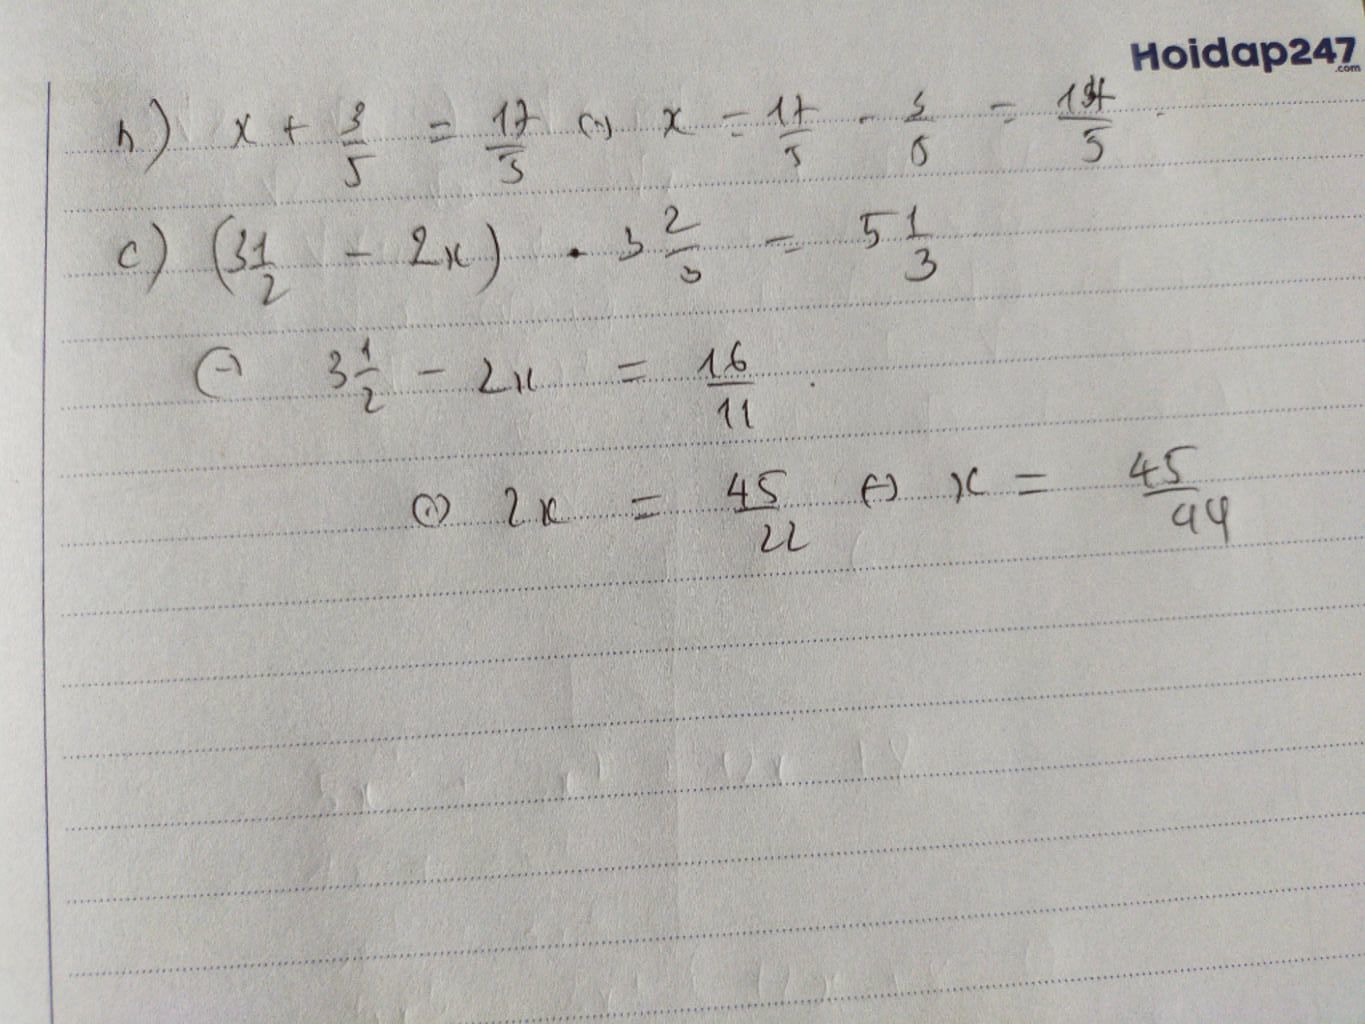 Hoidap247
.com
b) x + 3/5 = 17/5 (=) x = 17/5 - 3/5 = 14/5
c) (3 1/2 - 2x) . 3 2/3 = 5 1/3
(=) 3 1/2 - 2x = 16/11
(=) 2x = 45/22 (=) x = 45/44